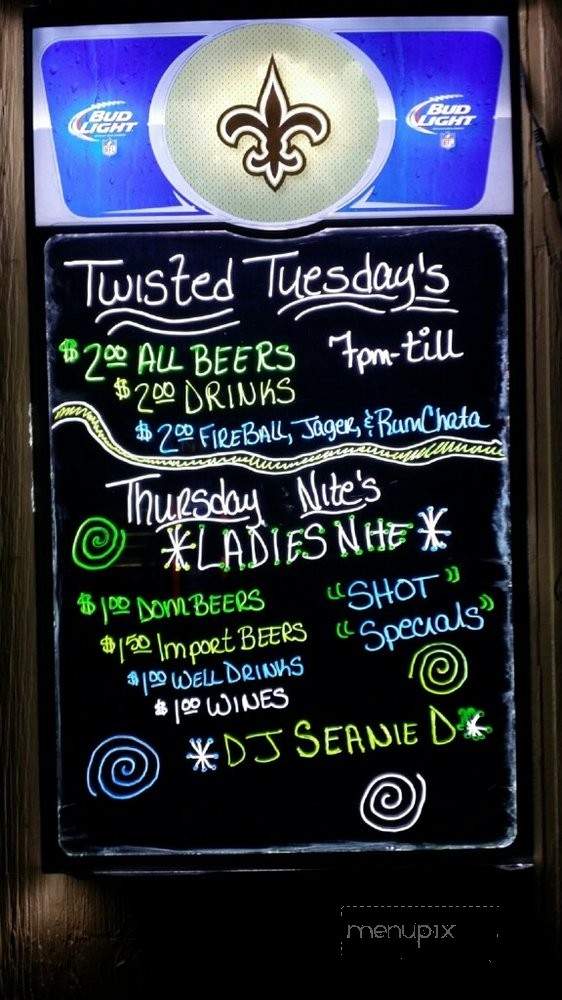 BUD LIGHT
BUD LIGHT
Twisted Tuesday's
$2.00 ALL BEERS
7pm-till
$2.00 DRINKS
$2.00 FIREBALL, Jager, & RumChata
Thursday Nite's
*LADIES NITE*
$1.00 Dom BEERS
"SHOT
Specials"
$1.50 Import BEERS
$1.00 WELL DRINKS
$1.00 WINES
*DJ SEANIE D*
menupix